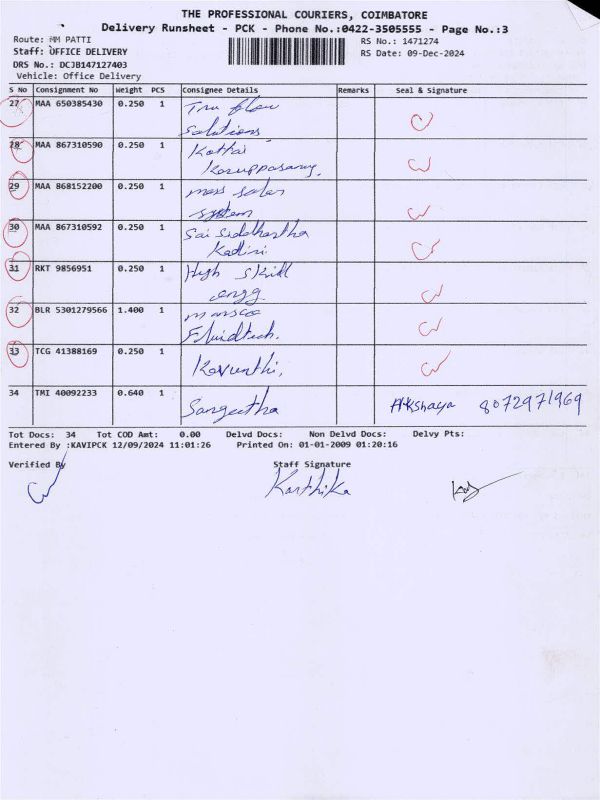 THE PROFESSIONAL COURIERS, COIMBATORE
Delivery Runsheet - PCK - Phone No.:0422-3505555 - Page No.:3
Route: MM PATTI
RS No.: 1471274
Staff: OFFICE DELIVERY
RS Date: 09-Dec-2024
DRS No.: DCJB147127403
Vehicle: Office Delivery
S No Consignment No Weight PCS Consignee Details Remarks Seal & Signature
27 MAA 650385430 0.250 1 Tru flow
Solutions
28 MAA 867310590 0.250 1 Kothai
Karuppasamy
29 MAA 868152200 0.250 1 mass solar
system
30 MAA 867310592 0.250 1 Sai Siddhartha
Kadiri
31 RKT 9856951 0.250 1 High Skill
engg.
32 BLR 5301279566 1.400 1
Fluidtech.
33 TCG 41388169 0.250 1
34 TMI 40092233 0.640 1 Sangeetha Akshaya 8072971969
Tot Docs: 34 Tot COD Amt: 0.00 Delvd Docs: Non Delvd Docs: Delvy Pts:
Entered By :KAVIPCK 12/09/2024 11:01:26 Printed On: 01-01-2009 01:20:16
Verified By Staff Signature
Karthika